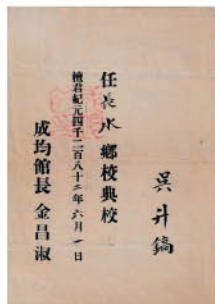 吳升鎬
任長水鄕校典校
檀君紀元四千二百八十二年六月一日
成均館長 金昌淑